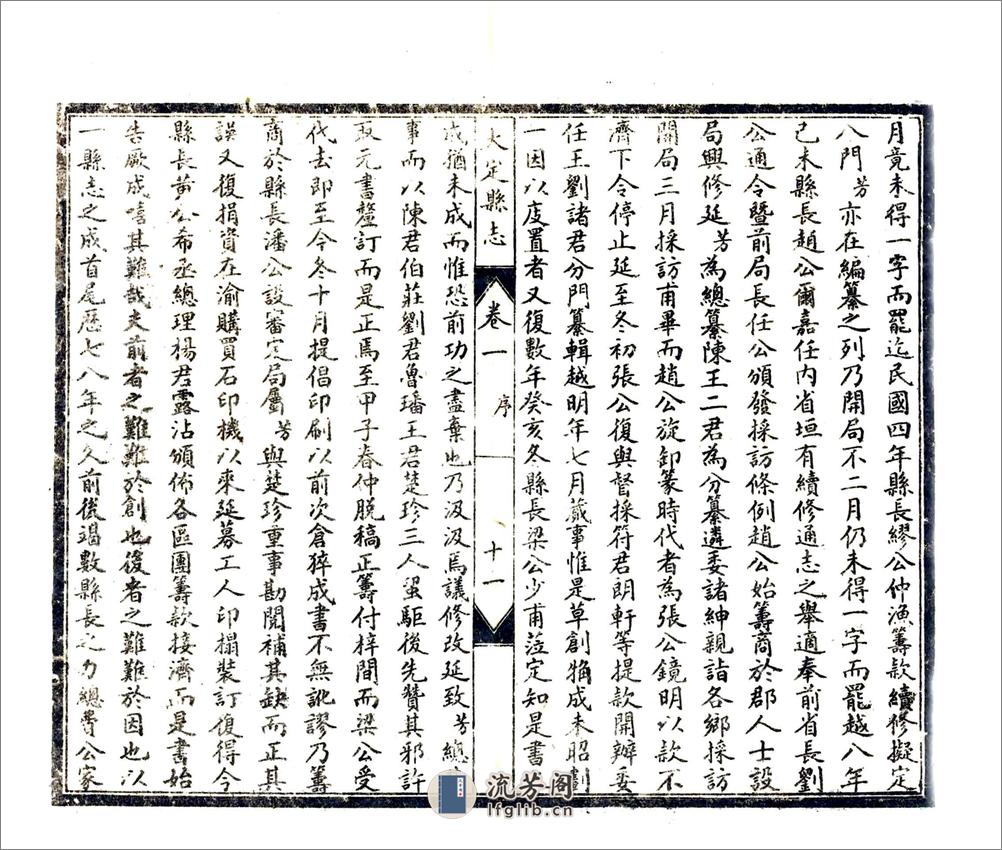 月竟未得一字而罷迄民國四年縣長繆公仲漁籌款續修擬定
八門芳亦在編纂之列乃開局不二月仍未得一字而罷越八年
己未縣長趙公爾嘉任內省垣有續修通志之舉適奉前省長劉
公通令暨前局長任公頒發採訪條例趙公始籌商於郡人士設
局興修延芳為總纂陳王二君為分纂遴委諸紳親詣各鄉採訪
開局三月採訪甫畢而趙公旋卸篆時代者為張公鏡明以款不
濟下令停止延至冬初張公復與督採符君朗軒等提款開辦委
任王劉諸君分門纂輯越明年七月蕆事惟是草創雖成未昭劃
一因以庋置者又復數年癸亥冬縣長梁公少甫蒞定知是書
大定縣志
卷一
序
十一
成猶未成而惟恐前功之盡棄也乃汲汲焉議修改延致芳總
事而以陳君伯莊劉君魯璠王君楚珍三人蛩駏後先贊其邪許
亟元書釐訂而是正焉至甲子春仲脫稿正籌付梓間而梁公受
代去即至今冬十月提倡印刷以前次倉猝成書不無訛謬乃籌
商於縣長潘公設審定局屬芳與楚珍重事勘閱補其缺而正其
誤又復捐資在渝購買石印機以來延募工人印搨裝訂復得今
縣長黃公希丞總理楊君露沾頒佈各區團籌款接濟而是書始
告厥成嘻其難哉夫前者之難難於創也後者之難難於因也以
一縣志之成首尾歷七八年之久前後竭數縣長之力總費公家
流芳阁
lfglib.cn